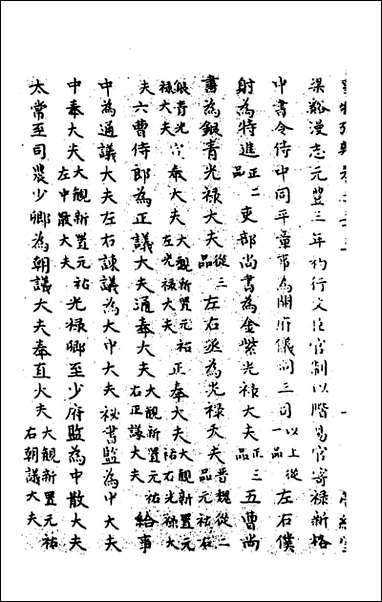 梁谿漫志元豐三年初行文臣官制以階易官寄祿新格
中書令侍中同平章事為開府儀同三司以上從一品左右僕
射為特進正二品吏部尚書為金紫光祿大夫正三品五曹尚
書為銀青光祿大夫從三品左右丞為光祿大夫
銀青光祿大夫奉大夫大觀新置元祐左光祿大夫正奉大夫大觀新置元祐右光祿大夫給事
夫六曹侍郎為正議大夫通奉大夫大觀新置元祐右正議大夫給事
中為通議大夫左右諫議為大中大夫祕書監為中大夫
中奉大夫大觀新置元祐左中散大夫光祿卿至少府監為中散大夫
太常至司農少卿為朝議大夫奉直大夫大觀新置元祐右朝議大夫